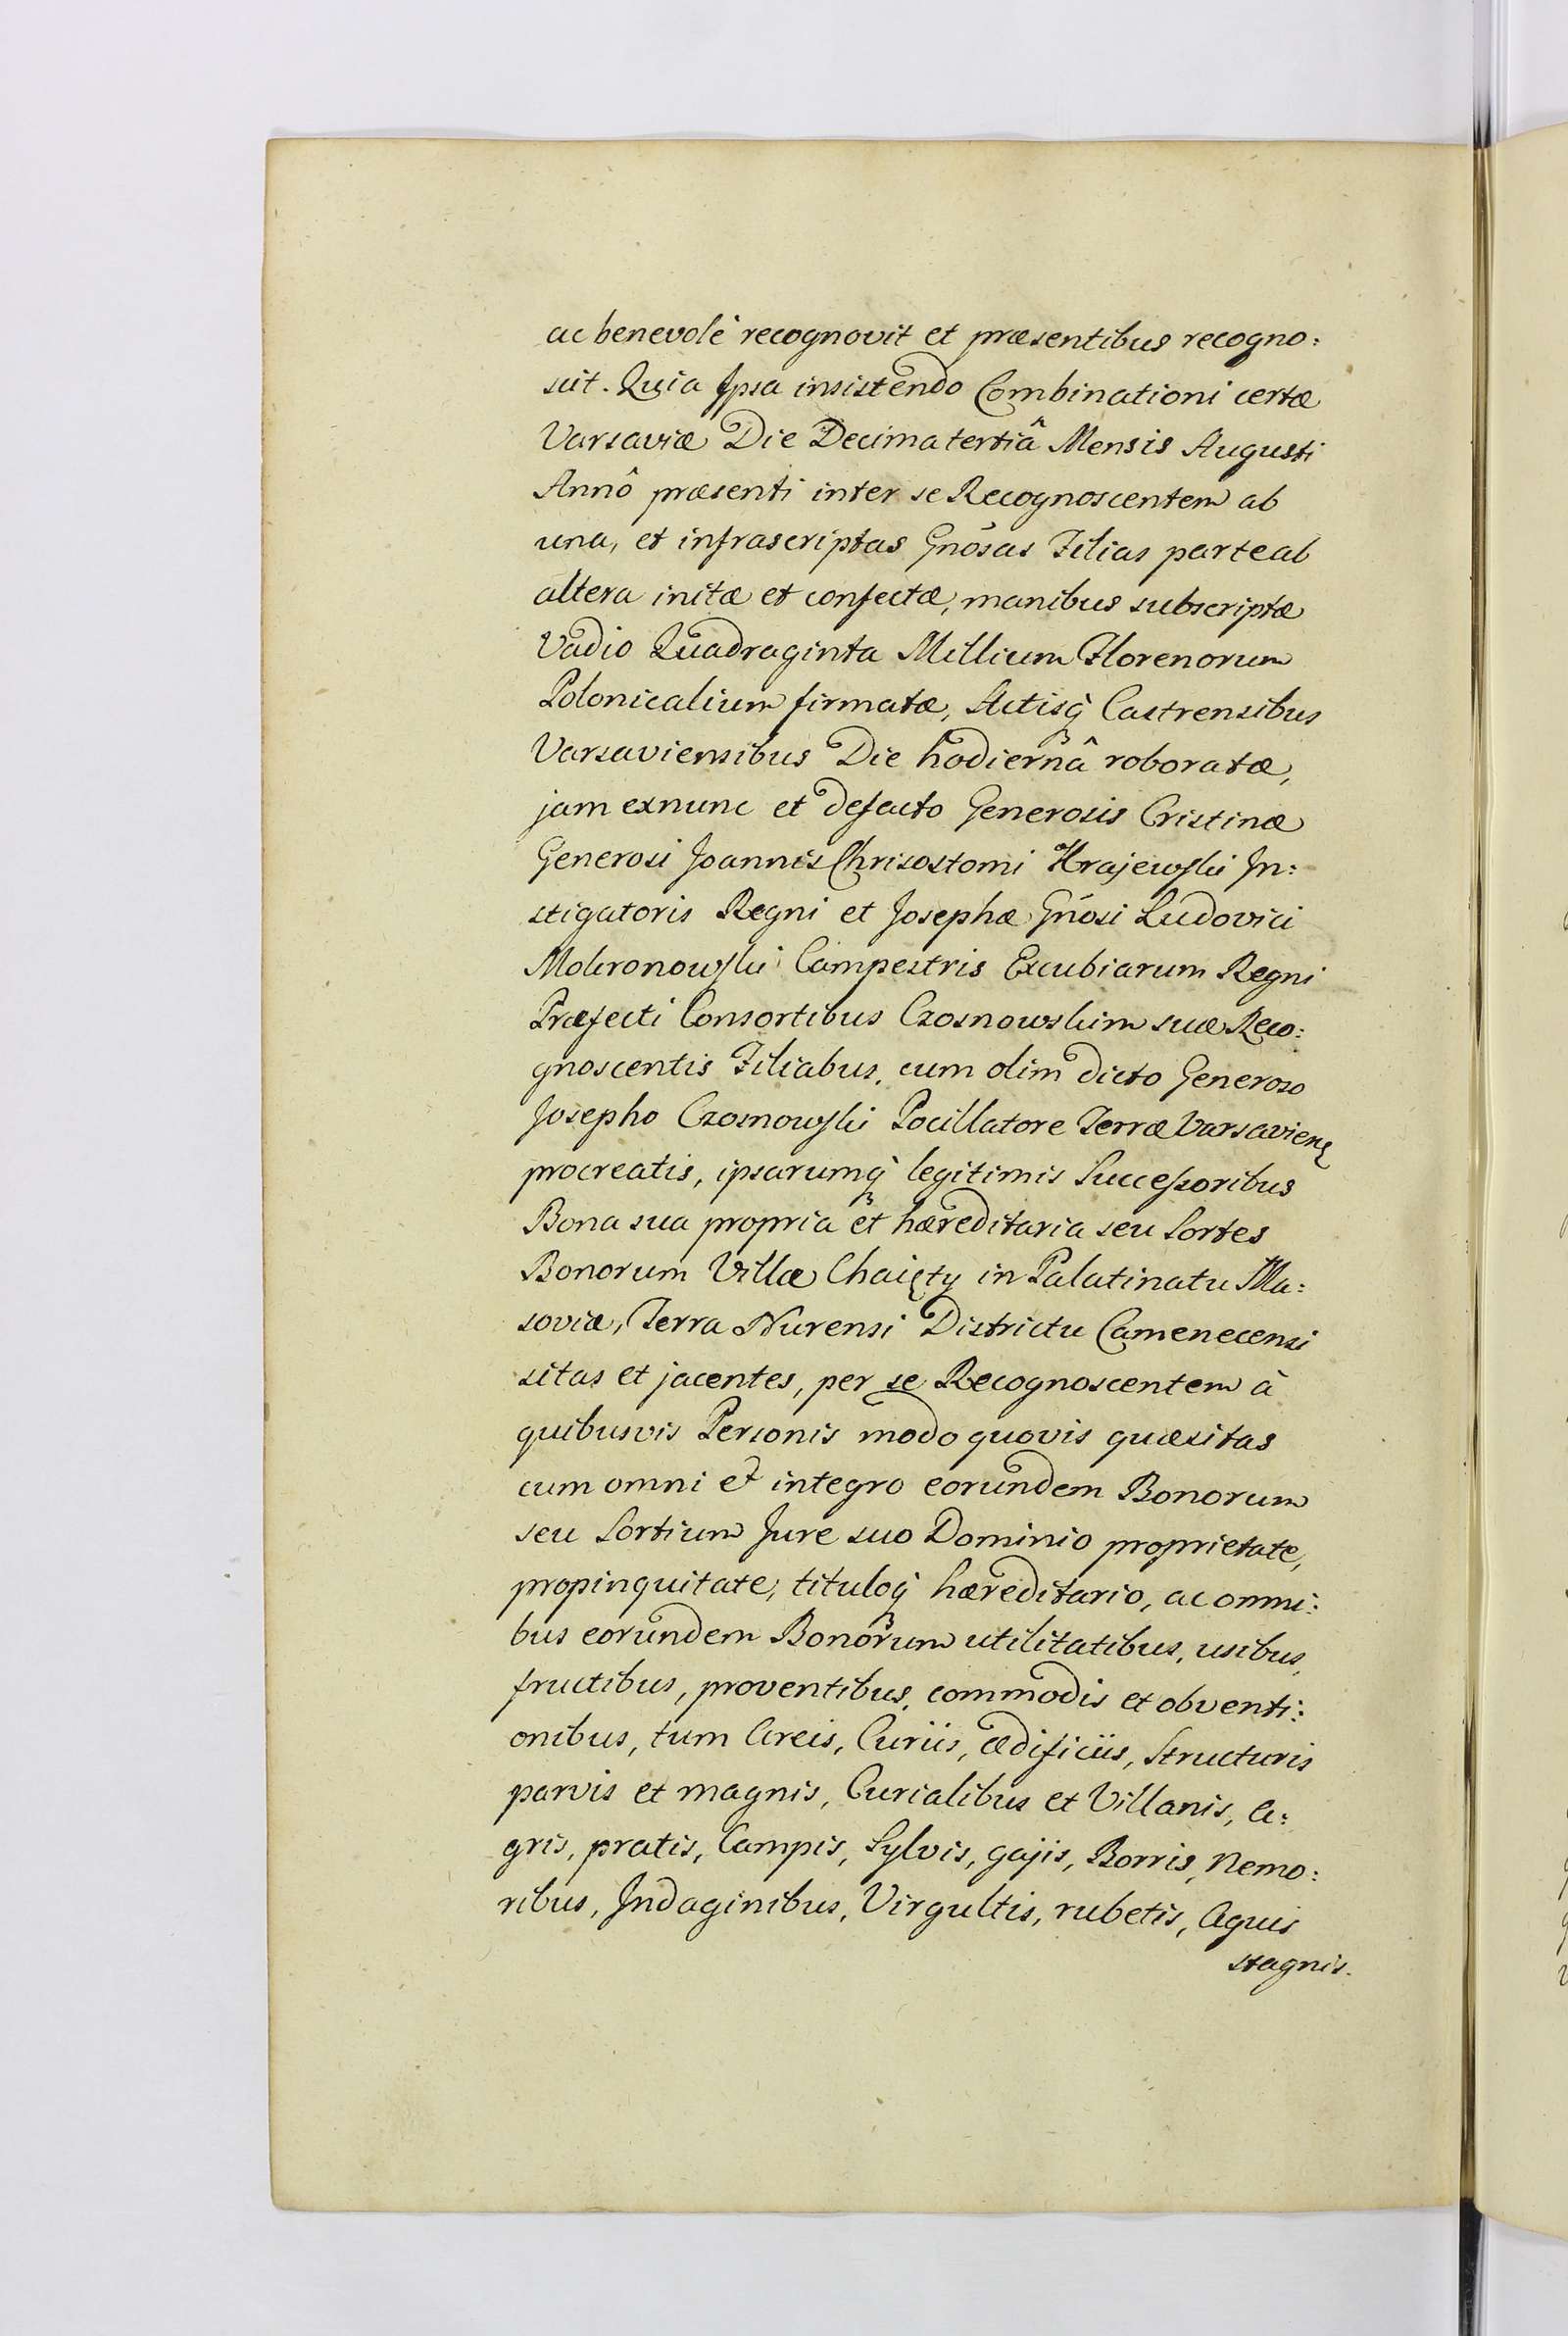 ac benevolè recognovit et præsentibus recogno:
scit. Quia Ipsa insistendo Combinationi certæ
Varsaviæ Die Decima tertiâ Mensis Augusti
Annô præsenti inter se Recognoscentem ab
una, et infrascriptas Gnõsas Filias parte ab
altera initæ et confectæ, manibus subscriptæ
Vadio Quadraginta Millium Florenorum
Polonicalium firmatæ, Actisq̃ Castrensibus
Varsaviensibus Die hodiernâ roboratæ,
jam exnunc et defacto Generosis Cristinæ
Generosi Joannis Chrisostomi Krajewski In:
stigatoris Regni et Josephæ Gnõsi Ludovici
Mokronowski Campestris Excubiarum Regni
Præfecti Consortibus Czosnowskim suæ Reco:
gnoscentis Filiabus, cum olim dicto Generoso
Josepho Czosnowski Pocillatore Terræ Varsavien̄
procreatis, ipsarumq̃ legitimis Successoribus
Bona sua propria et hæreditaria seu Sortes
Bonorum Villæ Chaięty in Palatinatu Ma:
soviæ, Terra Nurensi Districtu Camenecensi
sitas et jacentes, per se Recognoscentem à
quibusvis Personis modo quovis quæsitas
cum omni et integro eorundem Bonorum
seu Sortium Jure suo Dominio proprietate,
propinquitate, tituloq̃ hæreditario, ac omni:
bus eorundem Bonorum utilitatibus, usibus,
fructibus, proventibus, commodis et obventi:
onibus, tum Areis, Curiis, ædificiis, Structuris
parvis et magnis, Curialibus et Villanis, A:
gris, pratis, Campis, Sylvis, gajis, Borris, Nemo:
ribus, Indaginibus, Virgultis, rubetis, Aquis
stagnis.